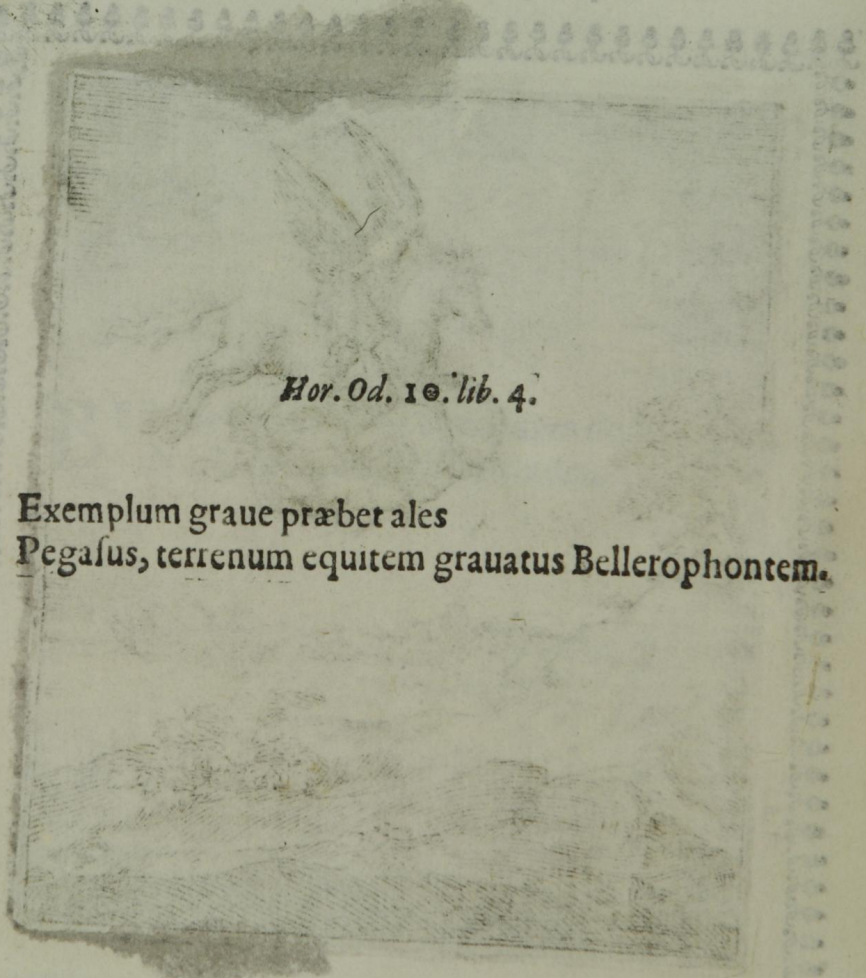 Hor. Od. 10. lib. 4.
Exemplum graue præbet ales
Pegaſus, terrenum equitem grauatus Bellerophontem.